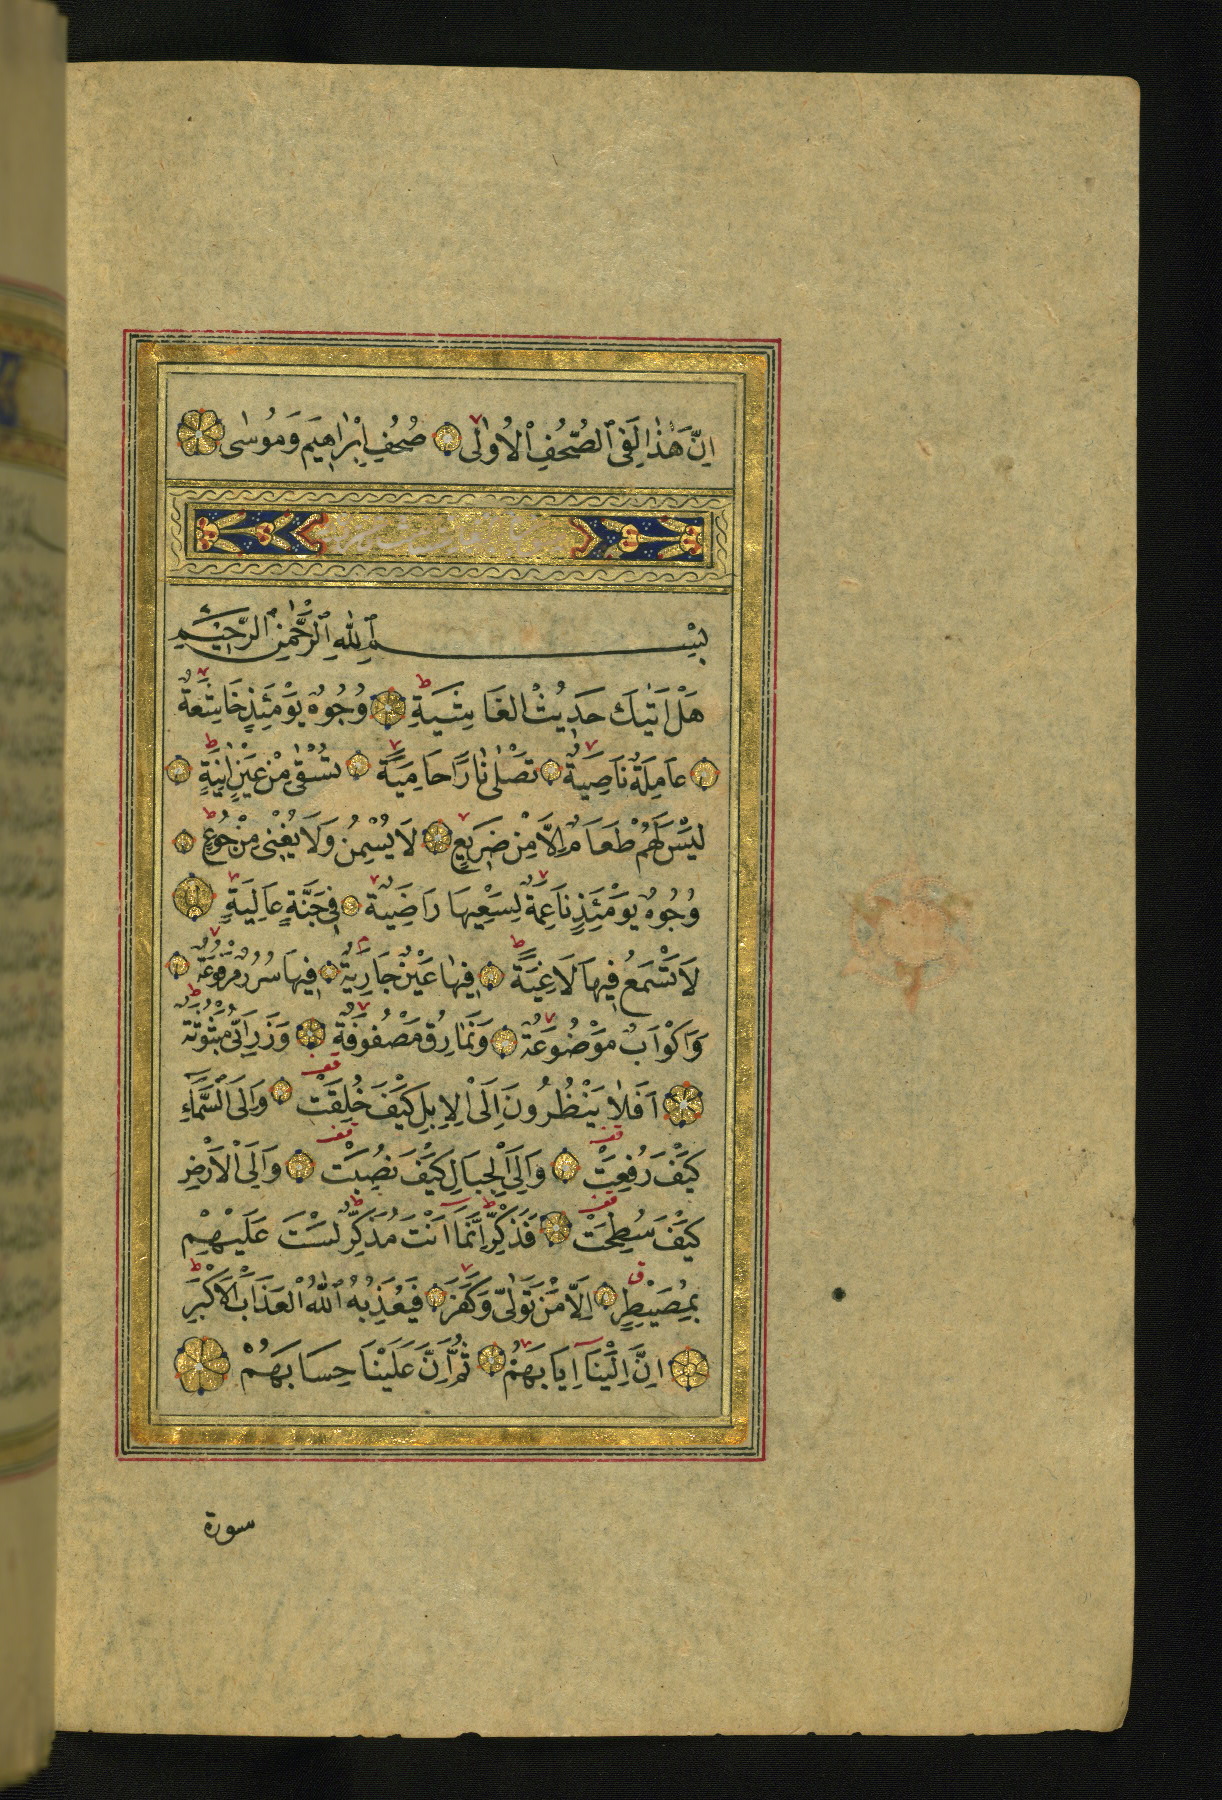 اِنَّ هٰذَا لَفِى ٱلصُّحُفِ ٱلْاُولٰى صُحُفِ اِبْرٰاهِيَم وَمُوسٰى
بِسْمِ ٱللّٰهِ ٱلرَّحْمٰنِ ٱلرَّحِيْمِ
هَلْ اَتٰيكَ حَدِيْثُ الْغَاشِيَةِ وُجُوهٌ يَوْمَئِذٍ خَاشِعَةٌ
عَامِلَةٌ نَاصِبَةٌ تَصْلٰى نَارًا حَامِيَةً تُسْقٰى مِنْ عَيْنٍ اٰنِيَةٍ
لَيْسَ لَهُمْ طَعَامٌ اِلَّا مِنْ ضَرِيْعٍ لَا يُسْمِنُ وَلَا يُغْنِى مِنْ جُوْعٍ
وُجُوهٌ يَوْمَئِذٍ نَاعِمَةٌ لِسَعْيِهَا رَاضِيَةٌ فِى جَنَّةٍ عَالِيَةٍ
لَا تَسْمَعُ فِيهَا لَاغِيَةً فِيهَا عَيْنٌ جَارِيَةٌ فِيهَا سُرُرٌ مَرْفُوعَةٌ
وَاَكْوَابٌ مَوْضُوعَةٌ وَنَمَارِقُ مَصْفُوفَةٌ وَزَرَابِىُّ مَبْثُوثَةٌ
اَفَلَا يَنْظُرُونَ اِلَى الْاِبِلِ كَيْفَ خُلِقَتْ وَاِلَى السَّمَاءِ
كَيْفَ رُفِعَتْ وَاِلَى الْجِبَالِ كَيْفَ نُصِبَتْ وَاِلَى الْاَرْضِ
كَيْفَ سُطِحَتْ فَذَكِّرْ اِنَّمَا اَنْتَ مُذَكِّرٌ لَسْتَ عَلَيْهِمْ
بِمُصَيْطِرٍ اِلَّا مَنْ تَوَلّٰى وَكَفَرَ فَيُعَذِّبُهُ ٱللّٰهُ الْعَذَابَ الْاَكْبَرَ
اِنَّ اِلَيْنَا اِيَابَهُمْ ثُمَّ اِنَّ عَلَيْنَا حِسَابَهُمْ
سورة